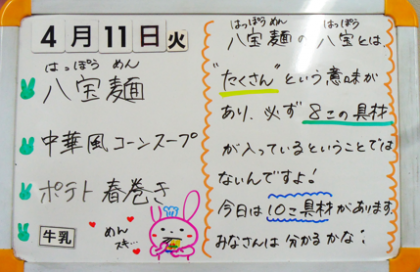 4月11日火
はっぽう めん
八宝麺
中華風コーンスープ
ポテト春巻き
牛乳
めん
スキ…
はっぽうめん はっぽう
八宝麺の八宝とは、
"たくさん"という意味が
あり、必ず8この具材
が入っているということでは
ないんですよ!
今日は10こ具材があります
みなさんは分かるかな?